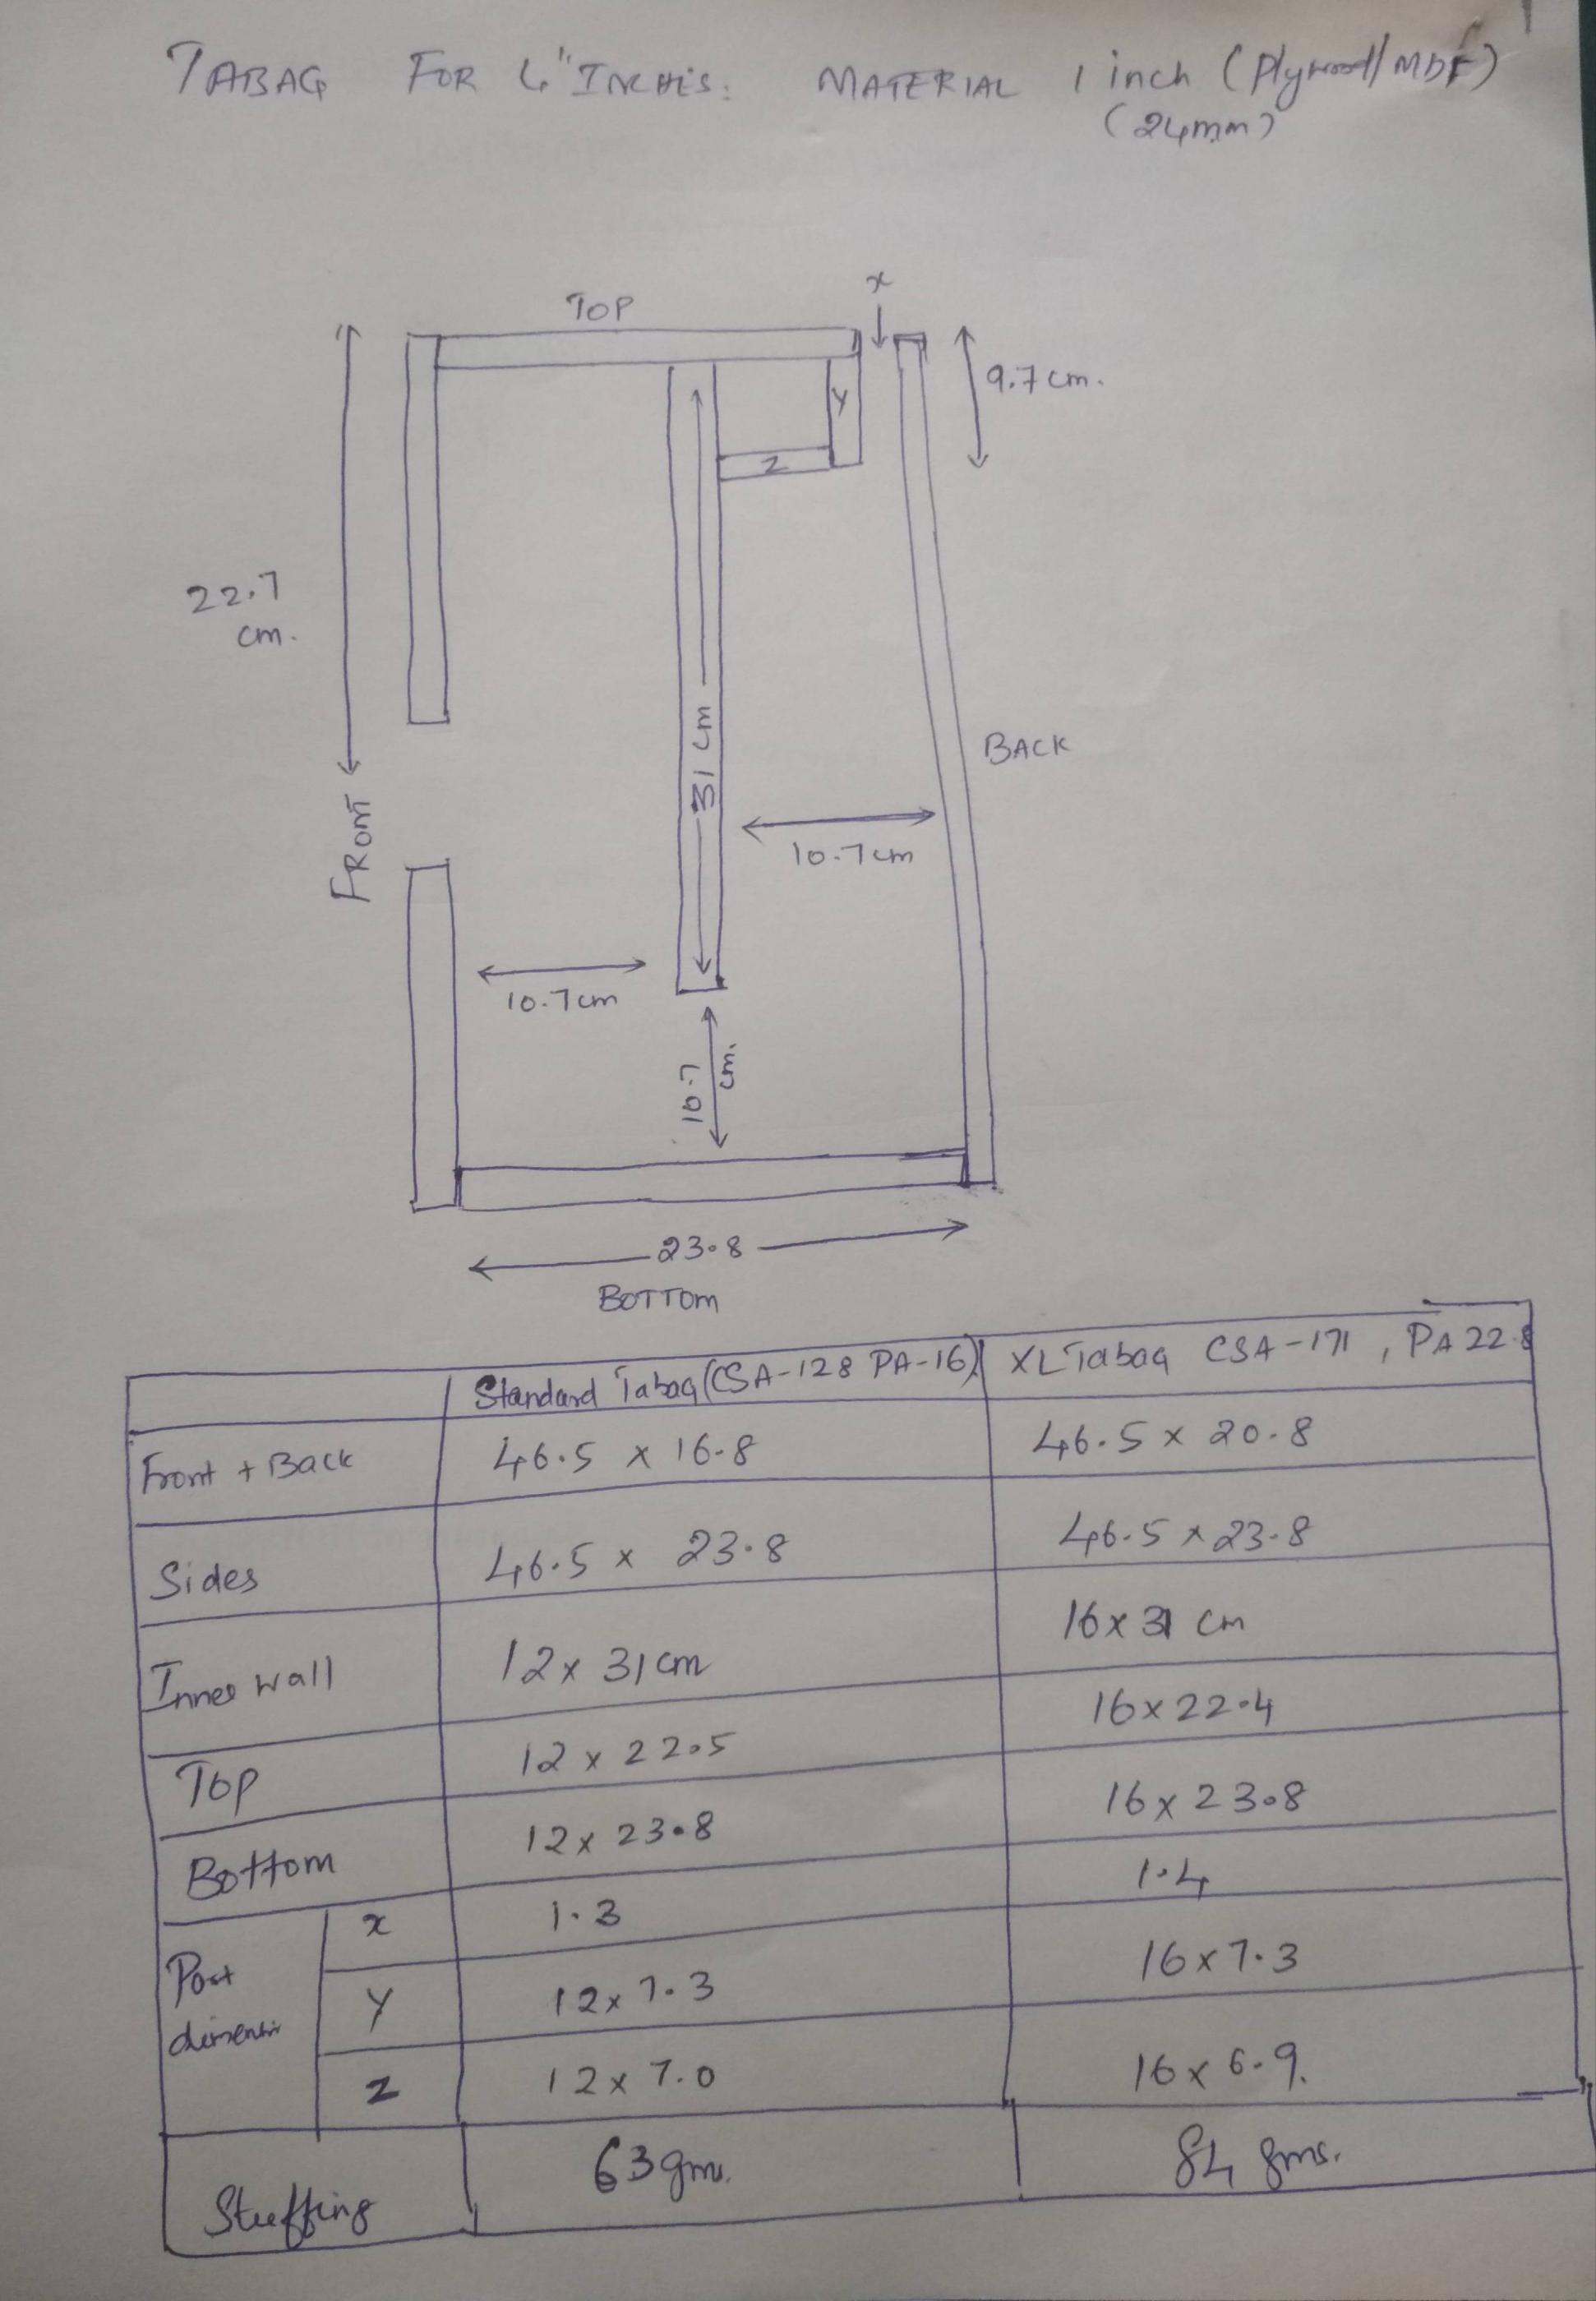 TABAQ FOR 4" INCHES: MATERIAL 1 inch (Plywood/MDF)
(24mm)
TOP
x
9.7 cm.
Y
Z
22.7
cm.
31 cm
BACK
FRONT
10.7cm
10.7cm
10.7
cm.
23.8
BOTTOM
Standard Tabaq (CSA-128 PA-16) XL Tabaq CSA-171, PA 22.8
Front + Back 46.5 x 16.8 46.5 x 20.8
Sides 46.5 x 23.8 46.5 x 23.8
Inner wall 12 x 31cm 16 x 31 cm
Top 12 x 22.5 16 x 22.4
Bottom 12 x 23.8 16 x 23.8
x 1.3 1.4
Port Y 12 x 7.3 16 x 7.3
Z 12 x 7.0 16 x 6.9.
Stuffing 63 gms. 84 gms.